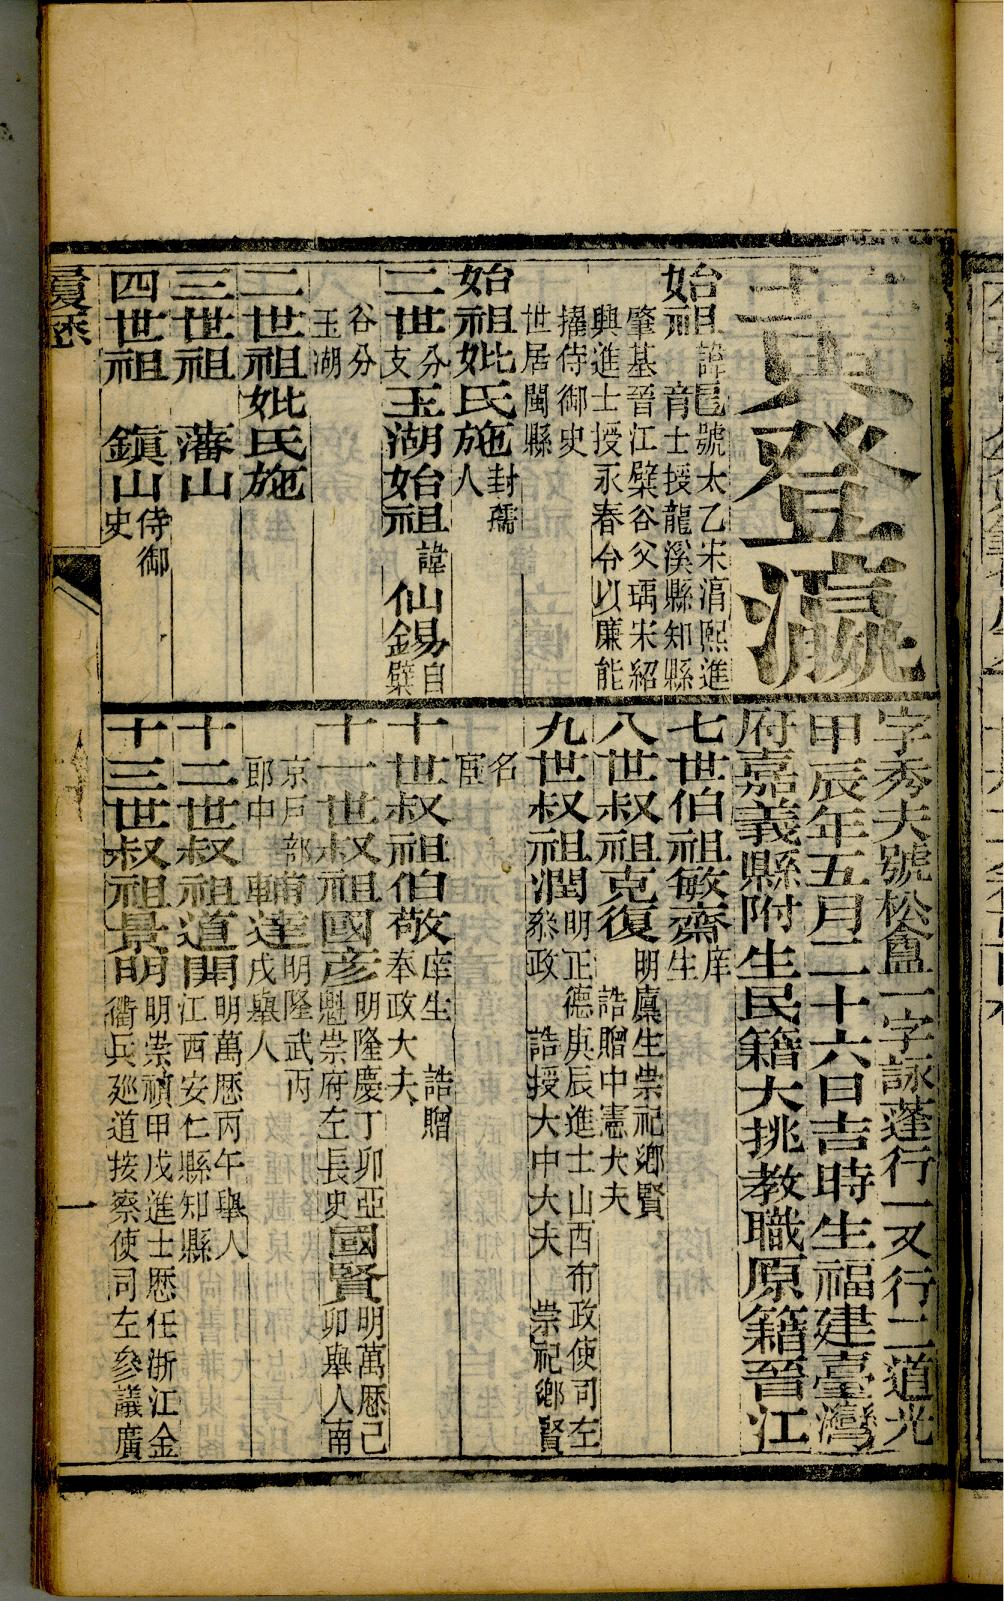 黃登瀛
字秀夫號松盫一字詠蓬行一又行二道光
甲辰年五月二十六日吉時生福建臺灣
府嘉義縣附生民籍大挑教職原籍晉江
始祖
諱邕號太乙宋淯熙進
育士授龍溪縣知縣
肇基晉江檗谷父瑀宋紹
興進士授永春令以廉能
擢侍御史
世居閩縣
始祖妣氏施
封孺
人
二世
分
支
玉湖始祖
諱
仙錫
自
檗
谷分
玉湖
二世祖妣氏施
三世祖 藩山
四世祖 鎭山
侍御
史
七世伯祖敏齋
庠
生
八世叔祖克復
明廩生崇祀鄉賢
誥贈中憲大夫
九世叔祖潤
明正德庚辰進士山西布政使司左
叅政 誥授大中大夫 崇祀鄉賢
名
宦
十世叔祖伯敬
庠生 誥贈
奉政大夫
十一世叔祖國彥
明隆慶丁卯亞
魁崇府左長史
國賢
明萬歷己
卯舉人南
京戶部
郎中
達
明隆武丙
戌舉人
十二世叔祖道開
明萬歷丙午舉人
江西安仁縣知縣
十三世叔祖景明
明崇禎甲戌進士歷任浙江金
衢兵廵道按察使司左叅議廣
履歷
一